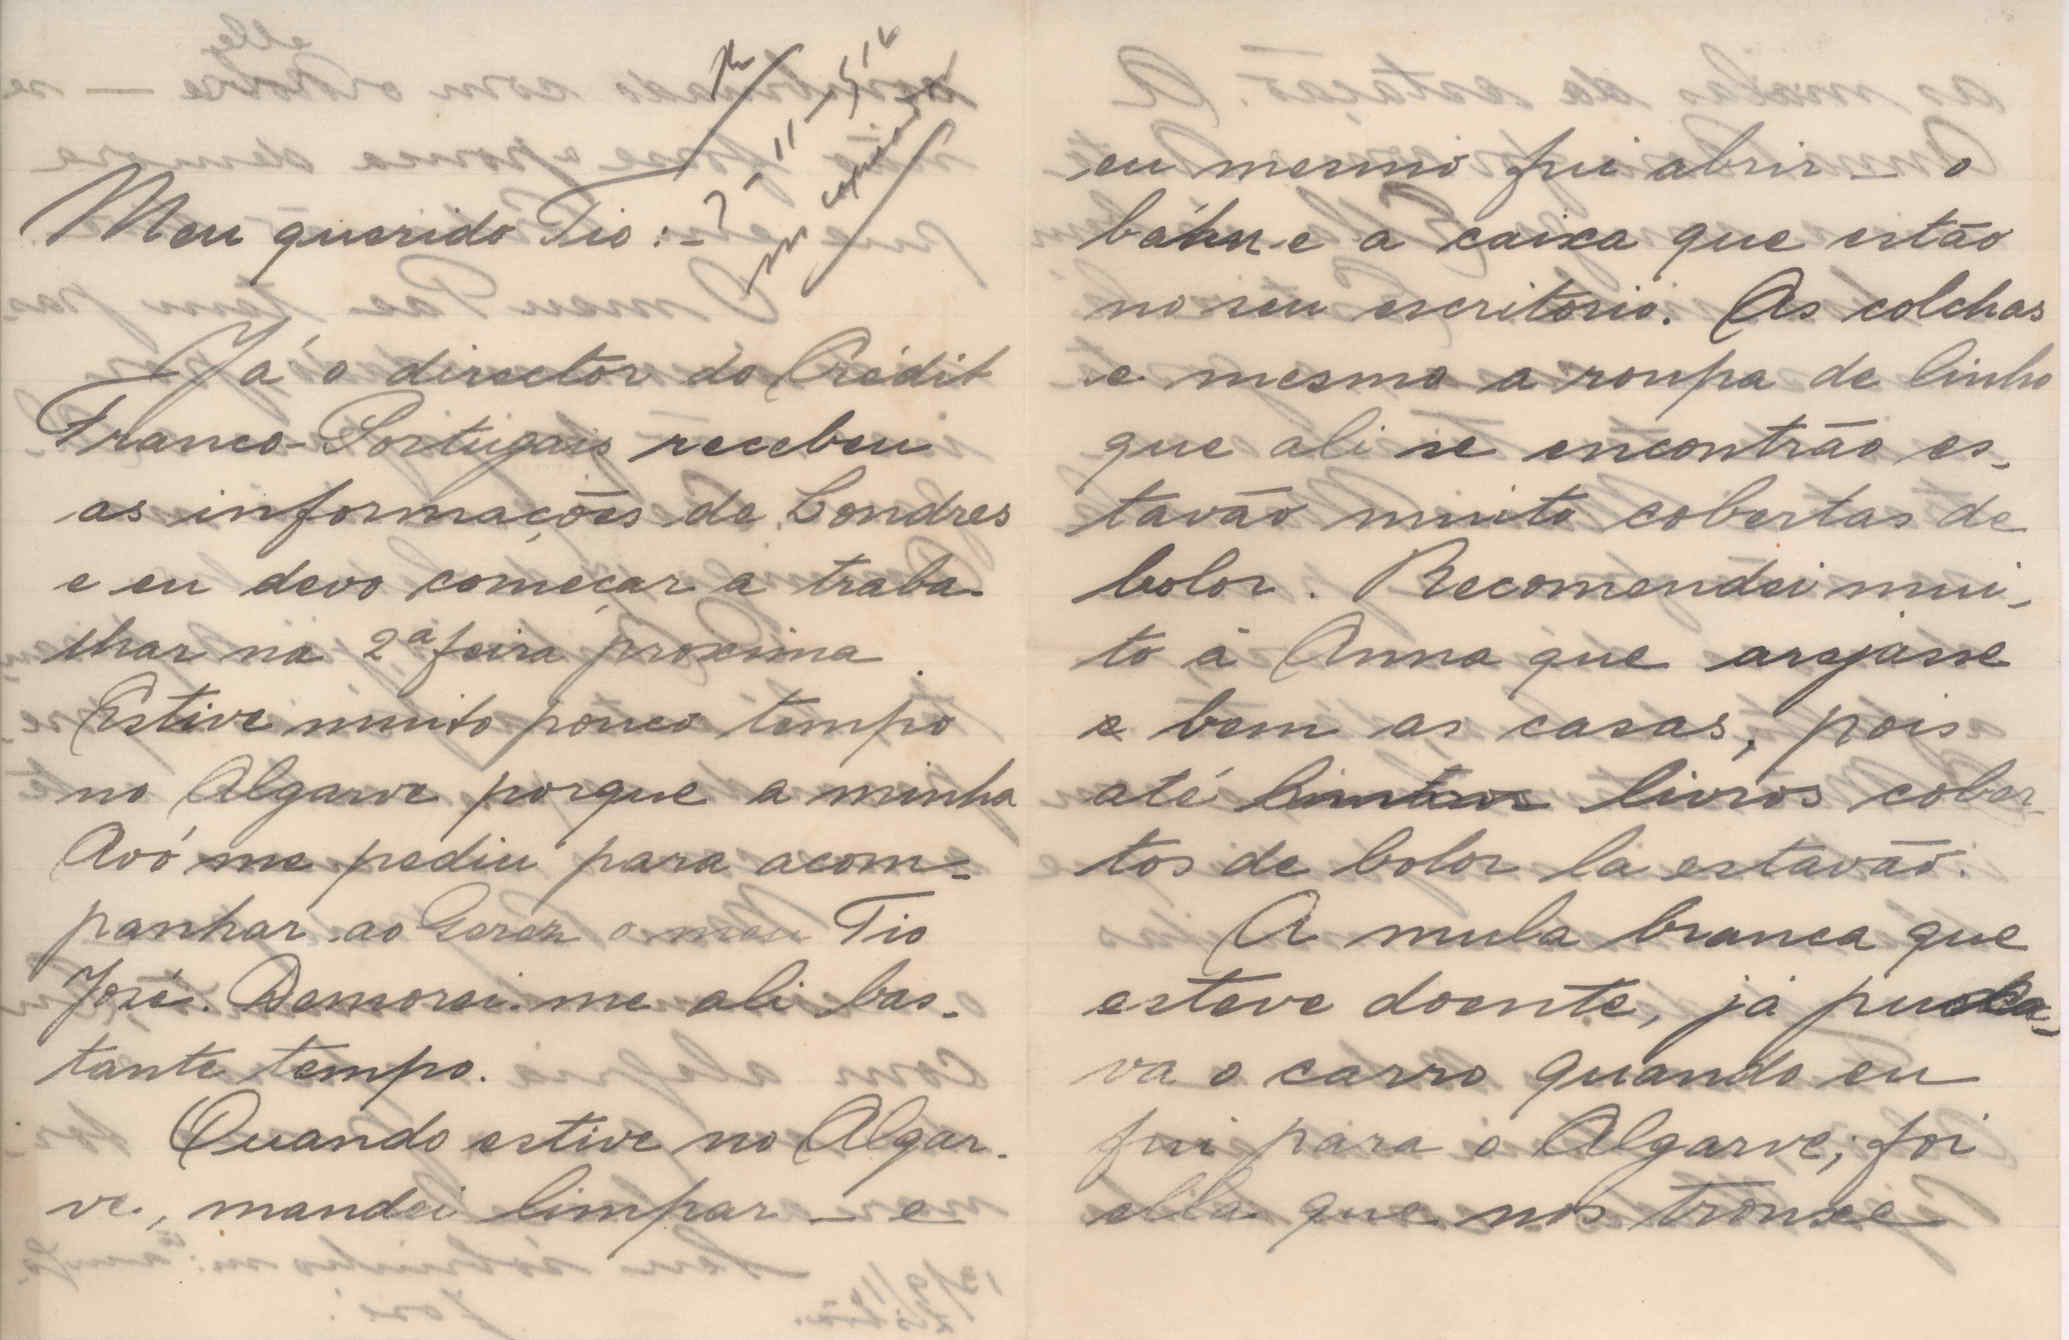 Meu querido Tio:-
Já o director do Crédit
Franco-Portugais recebeu
as informações de Londres
e eu devo começar a traba-
lhar na 2ª feira proxima.
Estive muito pouco tempo
no Algarve porque a minha
Avó me pediu para acom-
panhar ao Gerez o meu Tio
José. Demorei-me ali bas-
tante tempo.
Quando estive no Algar-
ve, mandei limpar — e
eu mesmo fui abrir — o
báhu e a caixa que estão
no seu escritorio. As colchas
e mesmo a roupa de linho
que ali se encontrão es-
tavão muito cobertas de
bolor. Recomendei mui-
to à Anna que arejasse
e bem as casas, pois
até livros cober-
tos de bolor la estavão.
A mula branca que
esteve doente, já puxa-
va o carro quando eu
fui para o Algarve; foi
ella que nos trouxe